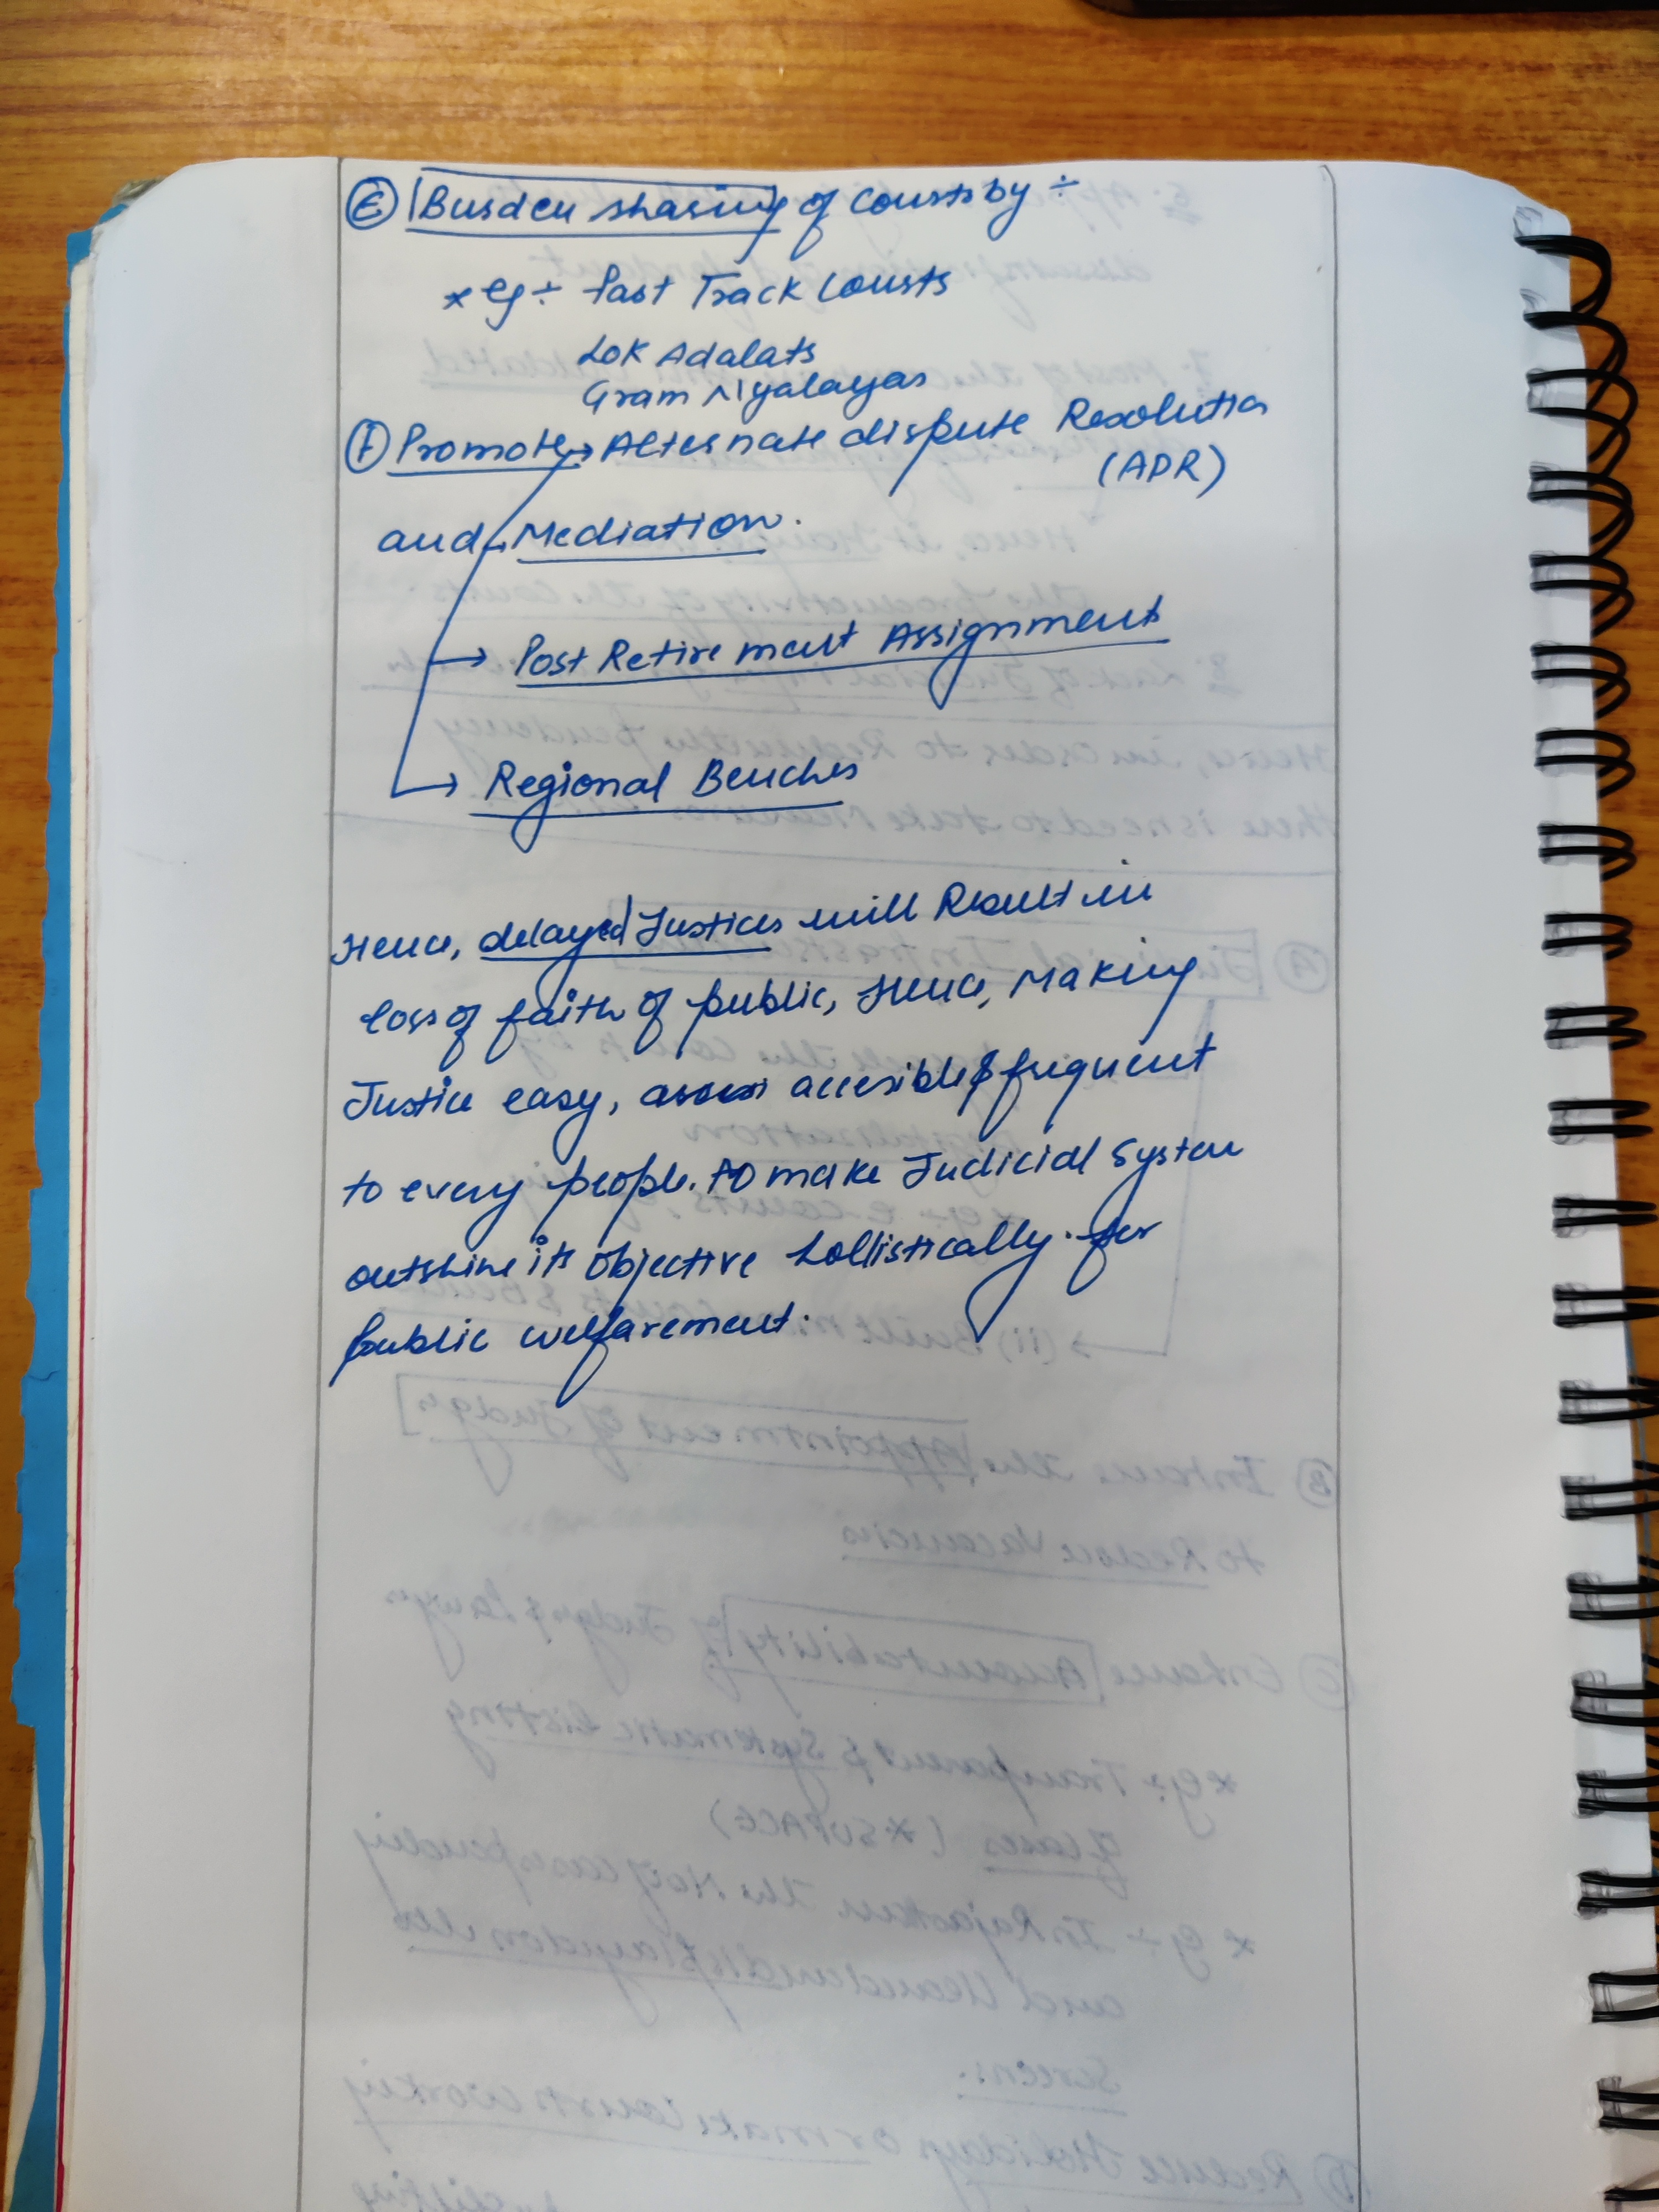 Ⓔ Burden sharing of Courts by ÷
* eg ÷ Fast Track Courts
Lok Adalats
Gram Nyalayas
Ⓕ Promote → Alternate dispute Resolution
(ADR)
and Mediation.
→ Post Retirement Assignments
→ Regional Benches
Hence, delayed Justices will Result in
loss of faith of public, Hence, Making
Justice easy, accesible & frequent
to every people. to make Judicial System
outshine its objective hollistically. for
public welfarement.